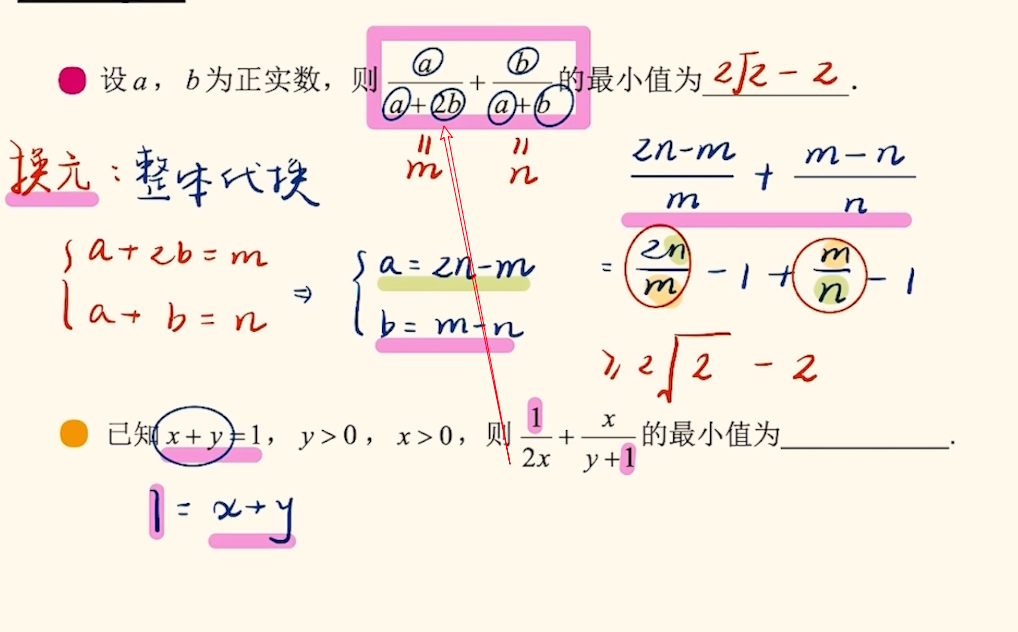 设a，b为正实数，则 a/(a+2b) + b/(a+b) 的最小值为 2√2 - 2 .
= m = n
换元：整体代换
(2n-m)/m + (m-n)/n
{ a+2b=m
a+b=n
⇒ { a=2n-m
b=m-n
= 2n/m - 1 + m/n - 1
≥ 2√2 - 2
已知x+y=1，y>0，x>0，则 1/(2x) + x/(y+1) 的最小值为____________.
1 = x+y